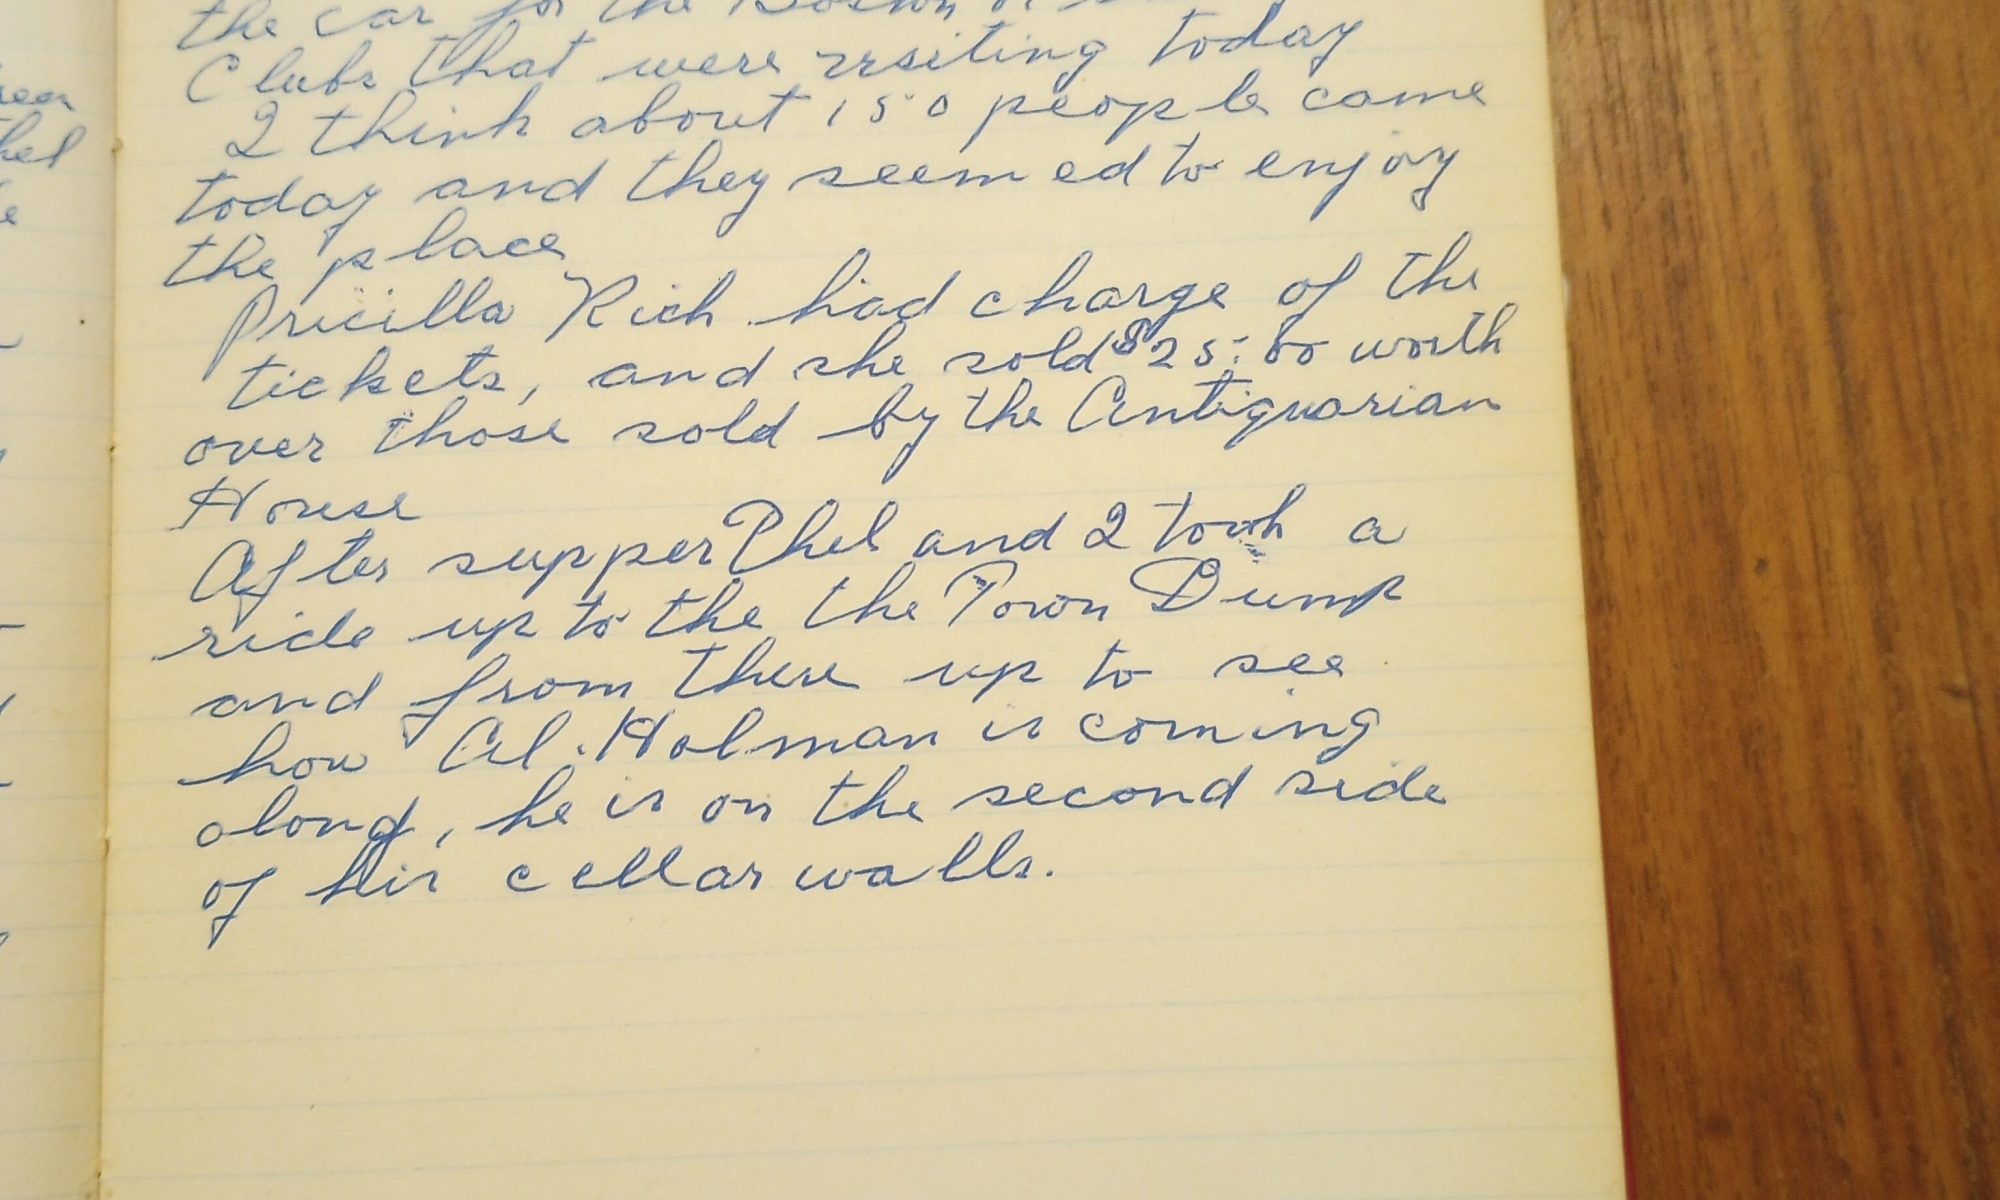 the car for the Boston
Clubs that were visiting today
I think about 150 people came
today and they seemed to enjoy
the place
Pricilla Rich had charge of the
tickets, and she sold $25.00 worth
over those sold by the Antiquarian
House
After supper Phel and I took a
ride up to the the Town Dump
and from there up to see
how Al. Holman is coming
along, he is on the second side
of his cellar walls.